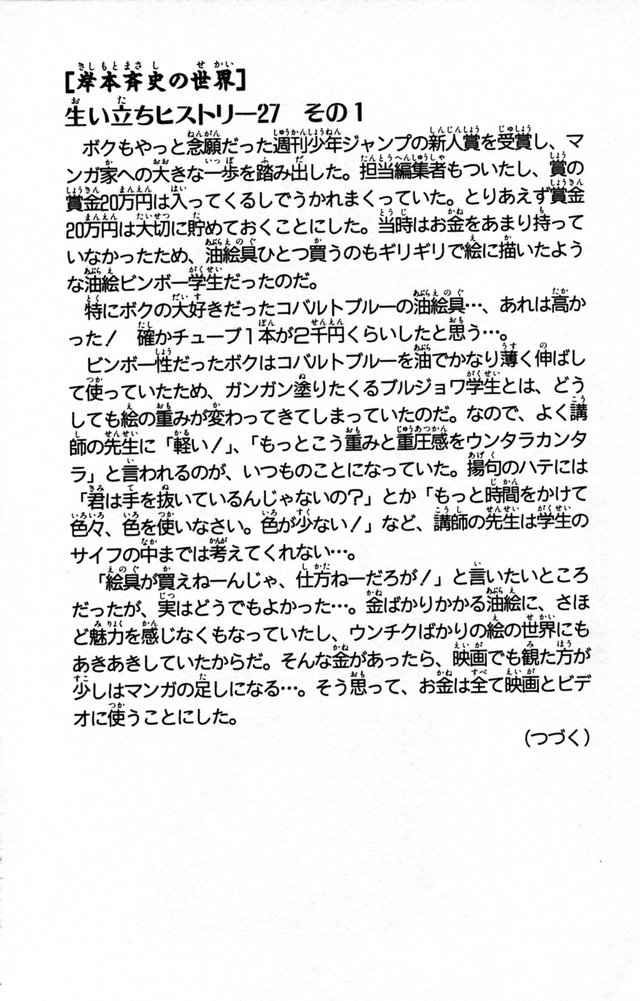 [岸本斉史の世界]
生い立ちヒストリー27　その1
ボクもやっと念願だった週刊少年ジャンプの新人賞を受賞し、マ
ンガ家への大きな一歩を踏み出した。担当編集者もついたし、賞の
賞金20万円は入ってくるしでうかれまくっていた。とりあえず賞金
20万円は大切に貯めておくことにした。当時はお金をあまり持って
いなかったため、油絵具ひとつ買うのもギリギリで絵に描いたよう
な油絵ビンボー学生だったのだ。
特にボクの大好きだったコバルトブルーの油絵具…、あれは高か
った！　確かチューブ1本が2千円くらいしたと思う…。
ビンボー性だったボクはコバルトブルーを油でかなり薄く伸ばし
て使っていたため、ガンガン塗りたくるブルジョワ学生とは、どう
しても絵の重みが変わってきてしまっていたのだ。なので、よく講
師の先生に「軽い！」、「もっとこう重みと重圧感をウンタラカンタ
ラ」と言われるのが、いつものことになっていた。揚句のハテには
「君は手を抜いているんじゃないの？」とか「もっと時間をかけて
色々、色を使いなさい。色が少ない！」など、講師の先生は学生の
サイフの中までは考えてくれない…。
「絵具が買えねーんじゃ、仕方ねーだろが！」と言いたいところ
だったが、実はどうでもよかった…。金ばかりかかる油絵に、さほ
ど魅力を感じなくもなっていたし、ウンチクばかりの絵の世界にも
あきあきしていたからだ。そんな金があったら、映画でも観た方が
少しはマンガの足しになる…。そう思って、お金は全て映画とビデ
オに使うことにした。
（つづく）